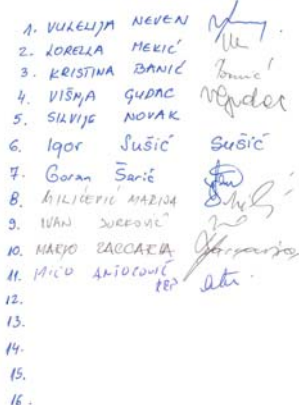 1. VUKELIJA NEVEN
2. LORELLA MEKIĆ
3. KRISTINA BANIĆ Banić
4. VIŠNJA GUDAC VGudac
5. SILVIJE NOVAK
6. Igor Sušić Sušić
7. Goran Šarić
8. MILIĆEVIĆ MARINA
9. IVAN JURKOVIĆ
10. MARIO ZACCARIA
11. MIĆO
12.
13.
14.
15.
16.